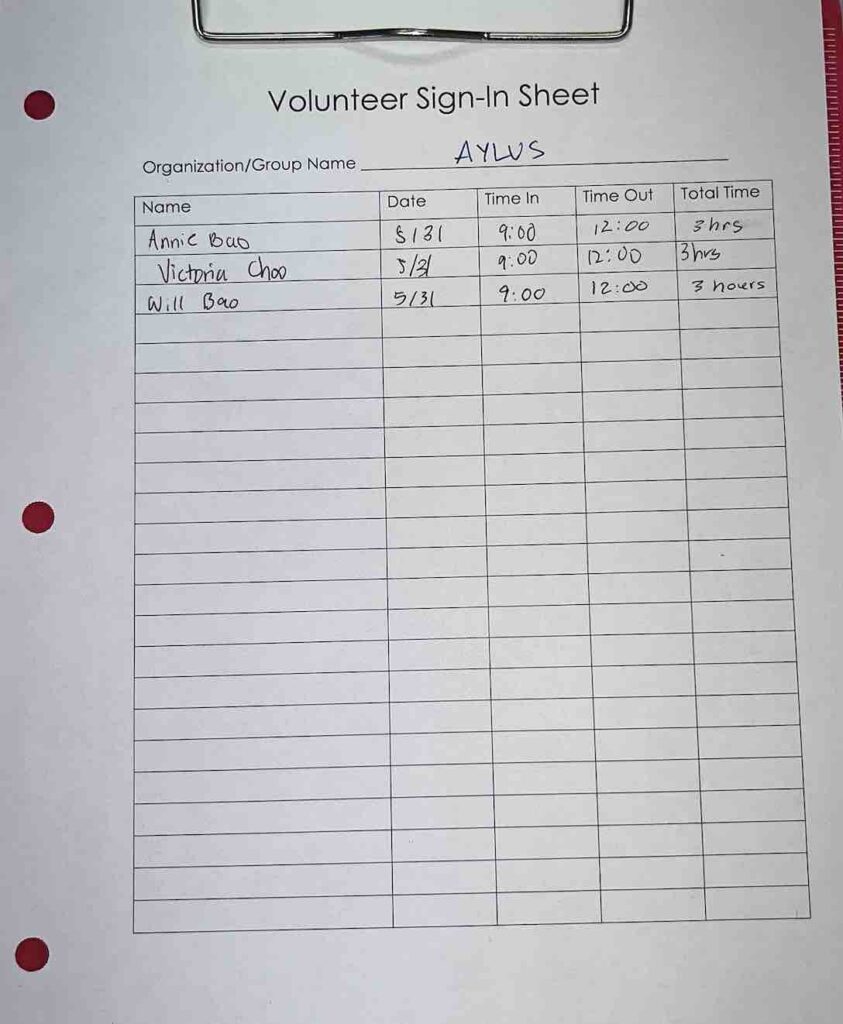 Volunteer Sign-In Sheet
Organization/Group Name AYLUS
Name Date Time In Time Out Total Time
Annie Bao 5/31 9:00 12:00 3 hrs
Victoria Choo 5/31 9:00 12:00 3 hrs
Will Bao 5/31 9:00 12:00 3 hours